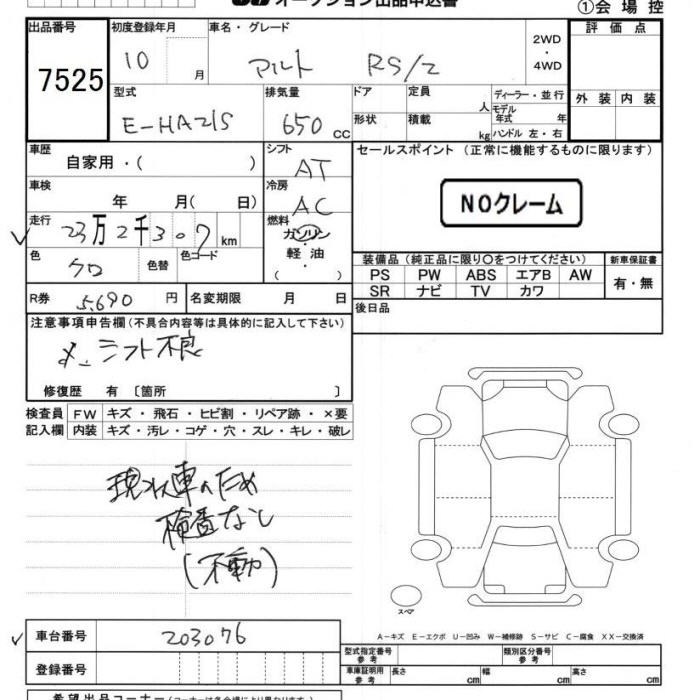 オークション出品申込書
①会場控
出品番号 7525
初度登録年月 10 月
車名・グレード アルト RS/Z
2WD・4WD
評価点
外装 内装
型式 E-HA21S
排気量 650 cc
ドア
形状
定員 人
積載 kg
ディーラー・並行
モデル年式 年
ハンドル 左・右
車歴 自家用・( )
シフト AT
セールスポイント (正常に機能するものに限ります)
NOクレーム
車検 年 月( 日)
冷房 AC
走行 23万2千307km
燃料 ガソリン・軽油 ( )
色 クロ 色替 色コード
装備品 (純正品に限り○をつけてください)
PS PW ABS エアB AW
SR ナビ TV カワ
新車保証書
有・無
R券 5,690 円
名変期限 月 日
後日品
注意事項申告欄(不具合内容等は具体的に記入して下さい)
シフト不良
修復歴 有 〔箇所 〕
検査員記入欄
FW キズ・飛石・ヒビ割・リペア跡・×要
内装 キズ・汚レ・コゲ・穴・スレ・キレ・破レ
車のため
検査なし
(不動)
スペア
A－キズ E－エクボ U－凹み W－補修跡 S－サビ C－腐食 XX－交換済
車台番号 203076
登録番号
型式指定番号 参考
類別区分番号 参考
車庫証明用 参考 長さ cm 幅 cm 高さ cm
希望出品コーナー